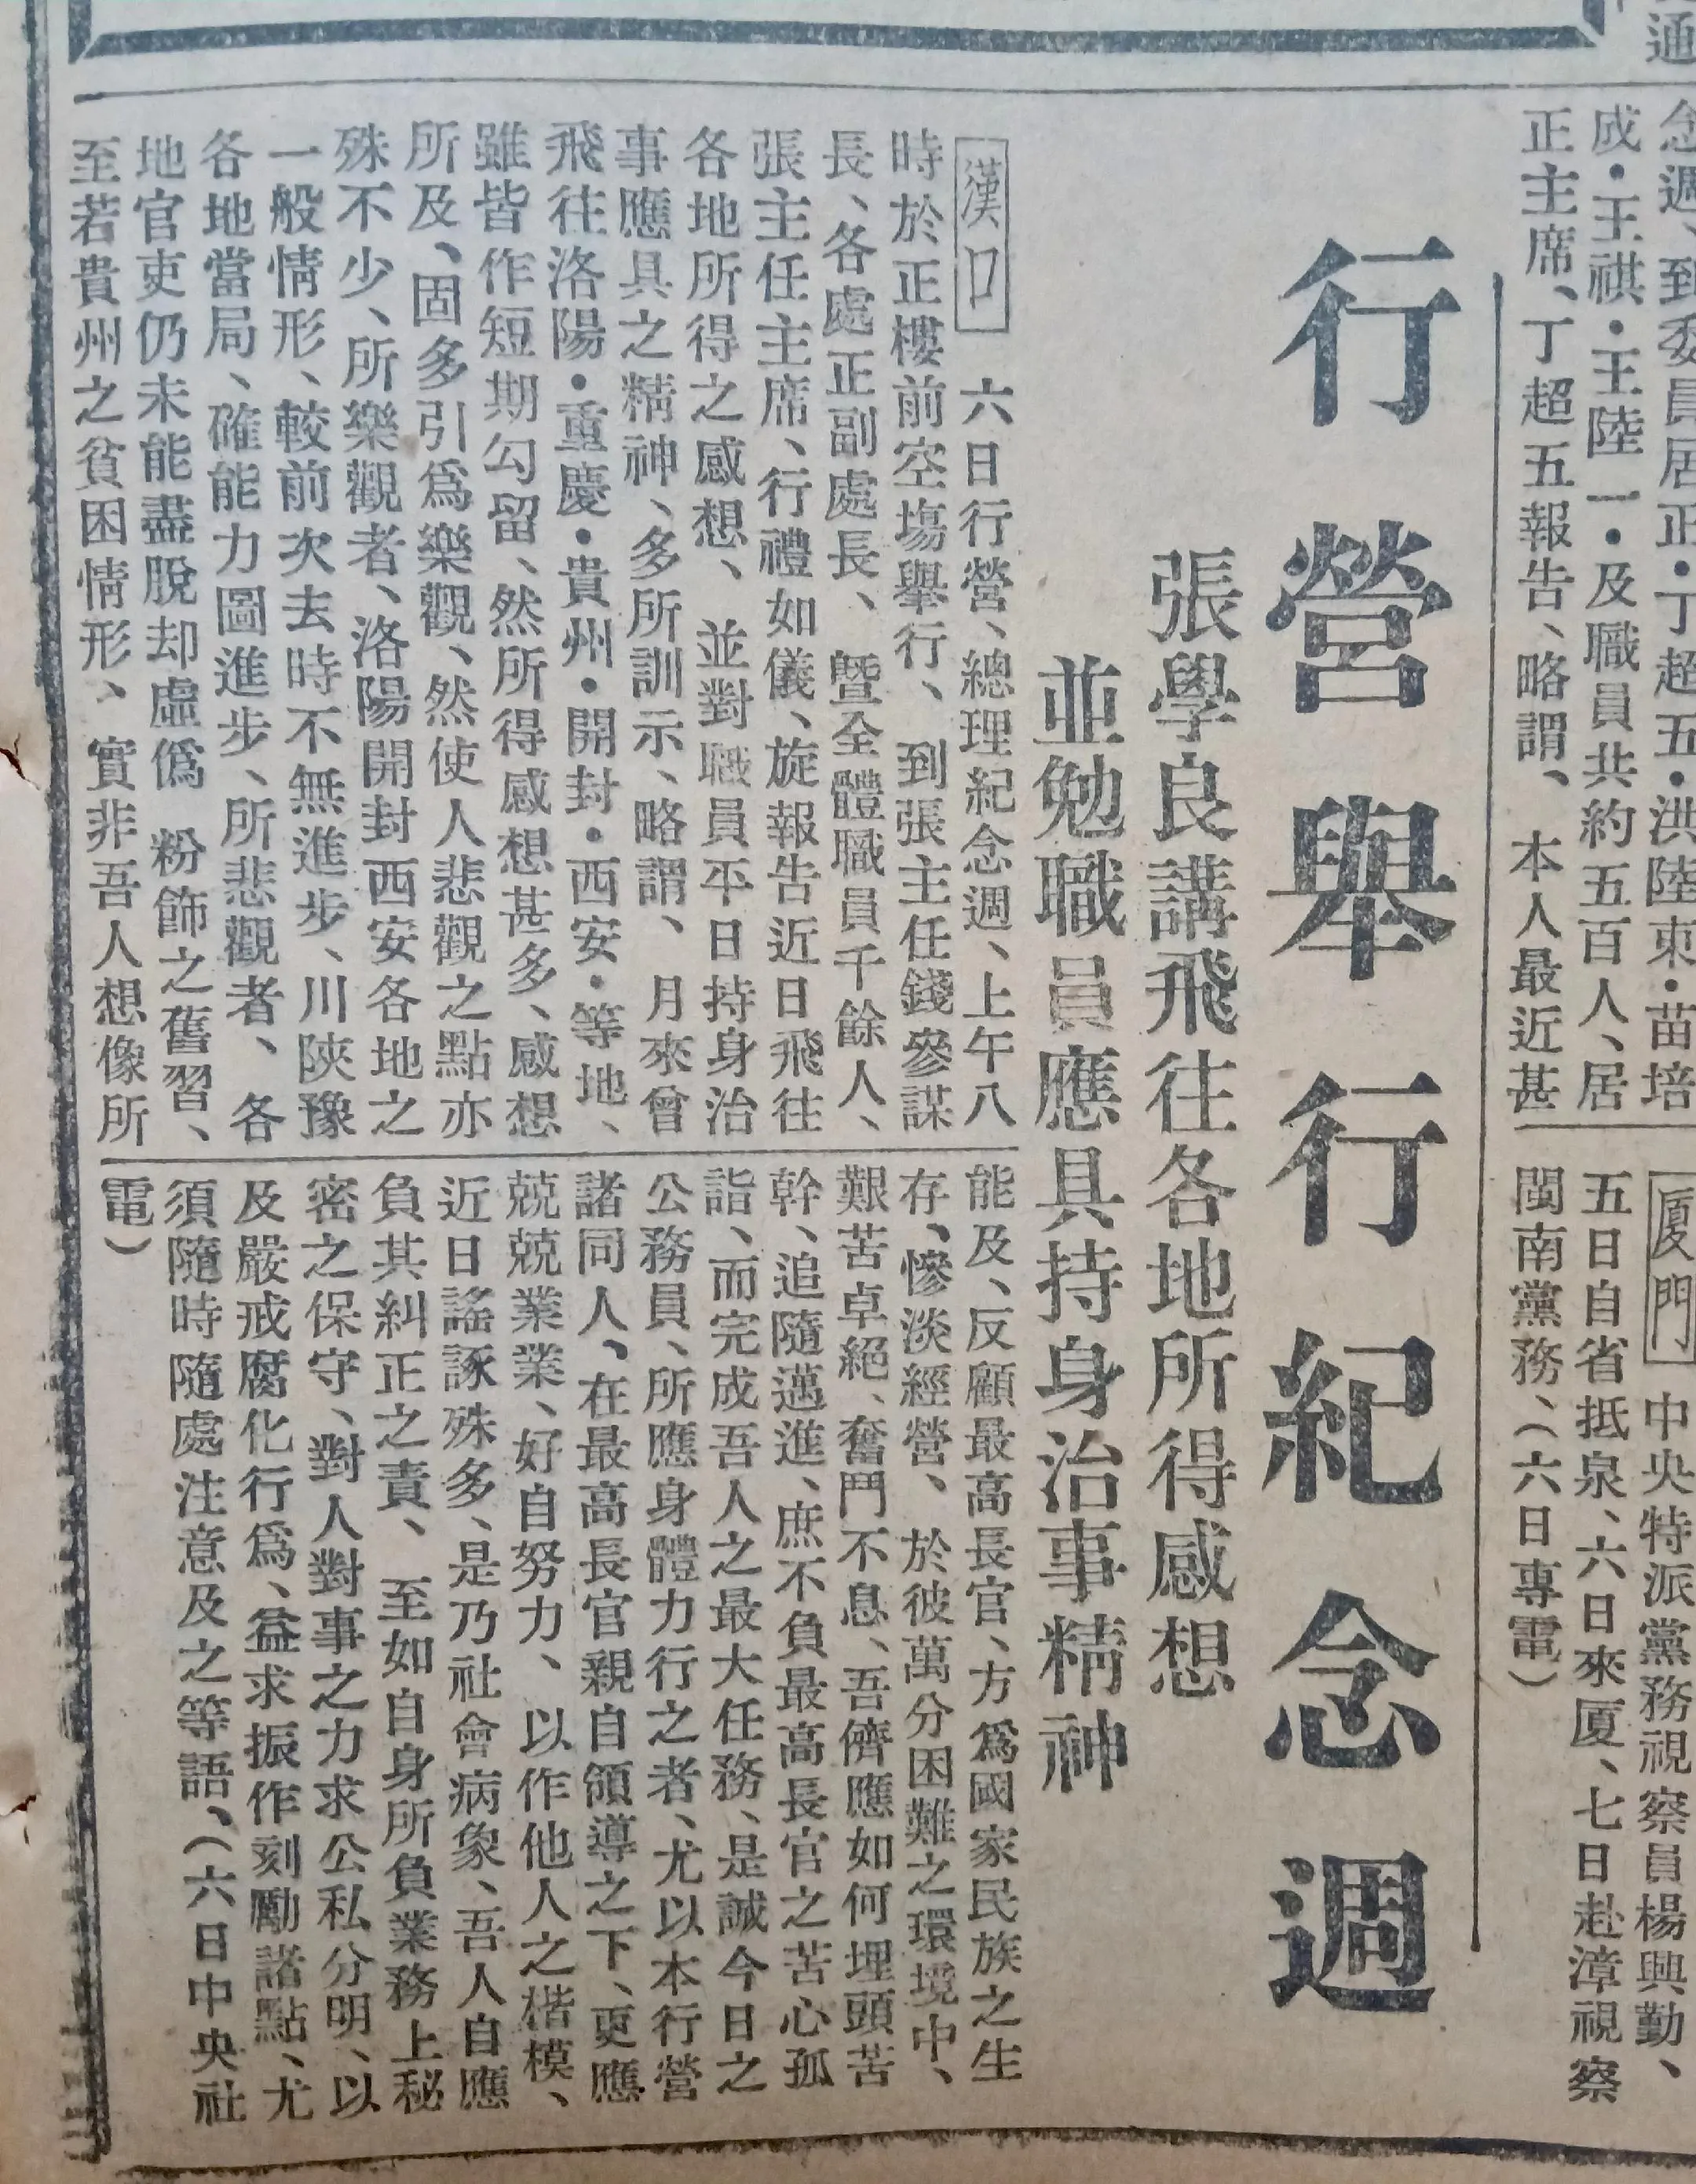 通
念週、到委員居正·丁超五·洪陸東·苗培
成·王祺·王陸一·及職員共約五百人、居
正主席、丁超五報告、略謂、本人最近甚
〔厦門〕中央特派黨務視察員楊興勤、
五日自省抵泉、六日來厦、七日赴漳視察
閩南黨務、（六日專電）
行營舉行紀念週
張學良講飛往各地所得感想
並勉職員應具持身治事精神
〔漢口〕六日行營、總理紀念週、上午八
時於正樓前空塲舉行、到張主任錢參謀
長、各處正副處長、曁全體職員千餘人、
張主任主席、行禮如儀、旋報告近日飛往
各地所得之感想、並對職員平日持身治
事應具之精神、多所訓示、略謂、月來曾
飛往洛陽·重慶·貴州·開封·西安·等地、
雖皆作短期勾留、然所得感想甚多、感想
所及、固多引爲樂觀、然使人悲觀之點亦
殊不少、所樂觀者、洛陽開封西安各地之
一般情形、較前次去時不無進步、川陝豫
各地當局、確能力圖進步、所悲觀者、各
地官吏仍未能盡脫却虛僞 粉飾之舊習、
至若貴州之貧困情形、實非吾人想像所
能及、反顧最高長官、方爲國家民族之生
存、慘淡經營、於彼萬分困難之環境中、
艱苦卓絕、奮鬥不息、吾儕應如何埋頭苦
幹、追隨邁進、庶不負最高長官之苦心孤
詣、而完成吾人之最大任務、是誠今日之
公務員、所應身體力行之者、尤以本行營
諸同人、在最高長官親自領導之下、更應
兢兢業業、好自努力、以作他人之楷模、
近日謠諑殊多、是乃社會病象、吾人自應
負其糾正之責、至如自身所負業務上秘
密之保守、對人對事之力求公私分明、以
及嚴戒腐化行爲、益求振作刻勵諸點、尤
須隨時隨處注意及之等語、（六日中央社
電）